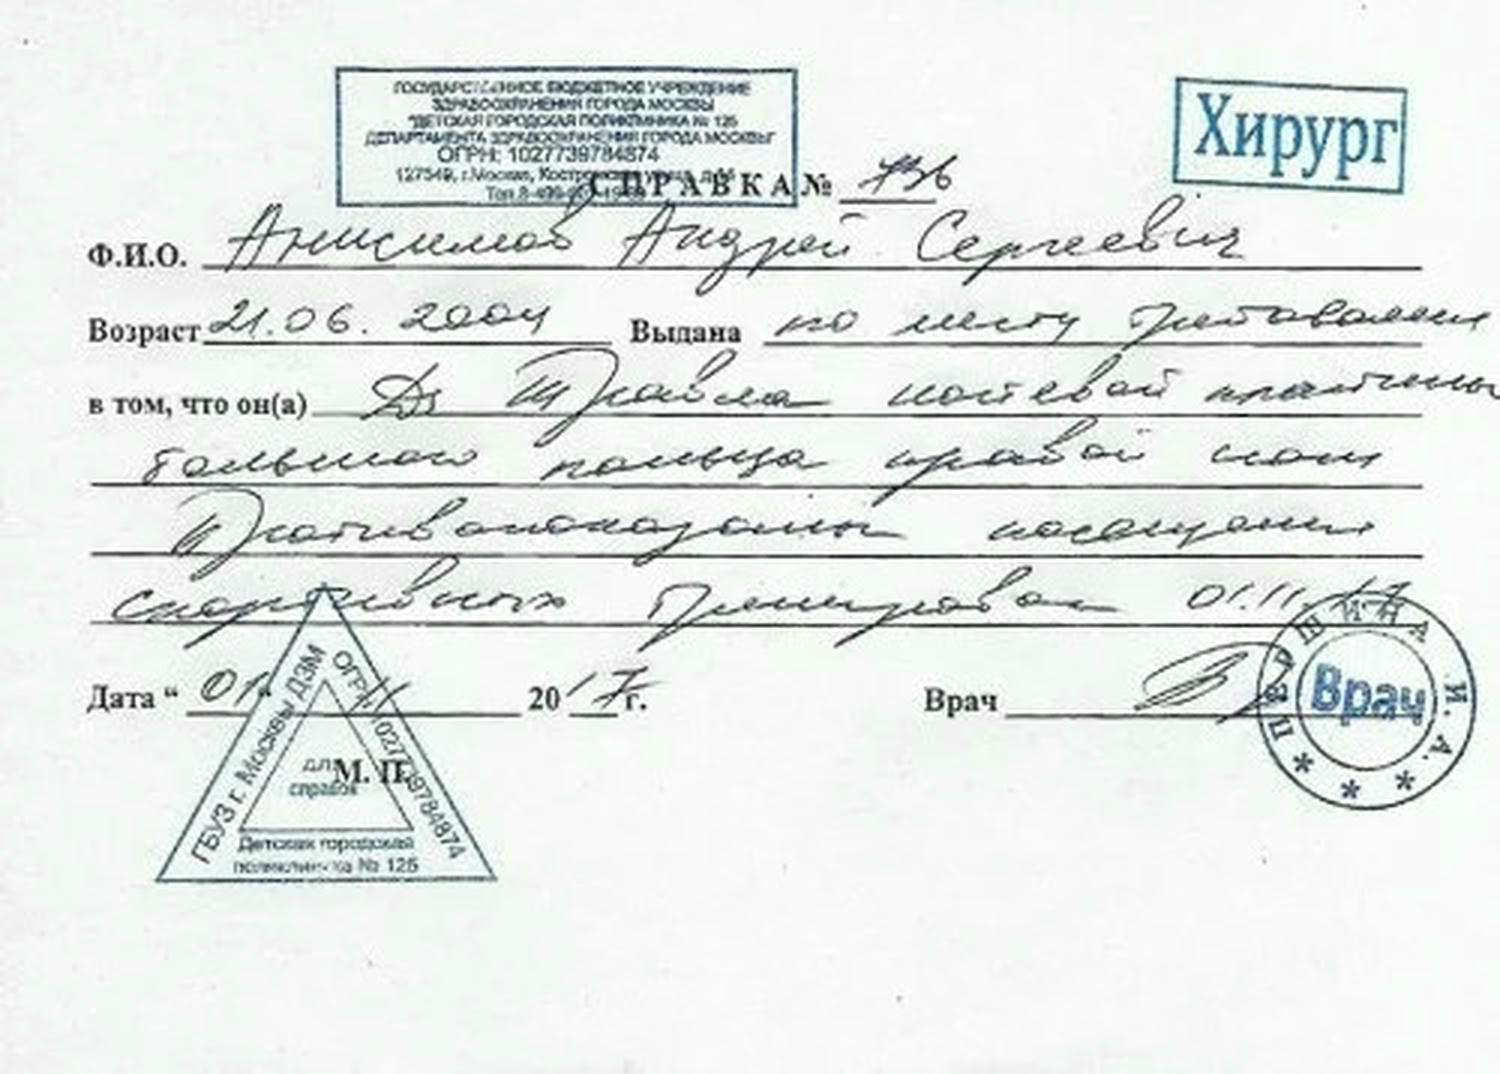 ГОСУДАРСТВЕННОЕ БЮДЖЕТНОЕ УЧРЕЖДЕНИЕ
ЗДРАВООХРАНЕНИЯ ГОРОДА МОСКВЫ
"ДЕТСКАЯ ГОРОДСКАЯ ПОЛИКЛИНИКА № 125
ДЕПАРТАМЕНТА ЗДРАВООХРАНЕНИЯ ГОРОДА МОСКВЫ"
ОГРН: 1027739784874
127549, г.Москва, Костромская улица, д.
Тел.8-499-
Хирург
СПРАВКА № 736
Ф.И.О. Анисимов Андрей Сергеевич
Возраст 21.06.2004 Выдана по месту требования
в том, что он(а) Ds Травма ногтевой пластины
большого пальца правой ноги
Противопоказаны посещения
спортивных тренировок 01.11.17
Дата "01" 11 2017г. Врач
М. П.
ГБУЗ г. Москвы ДЗМ
ОГРН 1027739784874
Детская городская
поликлиника № 125
для
справок
И. А.
Врач